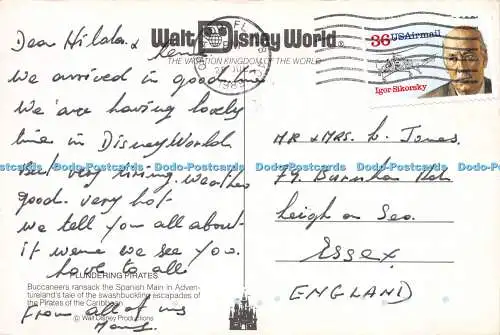 Walt Disney World®
THE VACATION KINGDOM OF THE WORLD
36 USAirmail
Igor Sikorsky
Dear Hilda &
we arrived in good time
We are having lovely
time in Disney World
But very tiring. weather
good. very hot
we tell you all about
it we see you.
love to all
from all of us
PLUNDERING PIRATES
Buccaneers ransack the Spanish Main in Adven-
tureland's tale of the swashbuckling escapades of
the Pirates of the Caribbean.
© Walt Disney Productions
MR & MRS. Jones.
Leigh on Sea.
Essex.
ENGLAND
Dodo-Postcards Dodo-Postcards Dodo-Postcards Dodo-Postcards